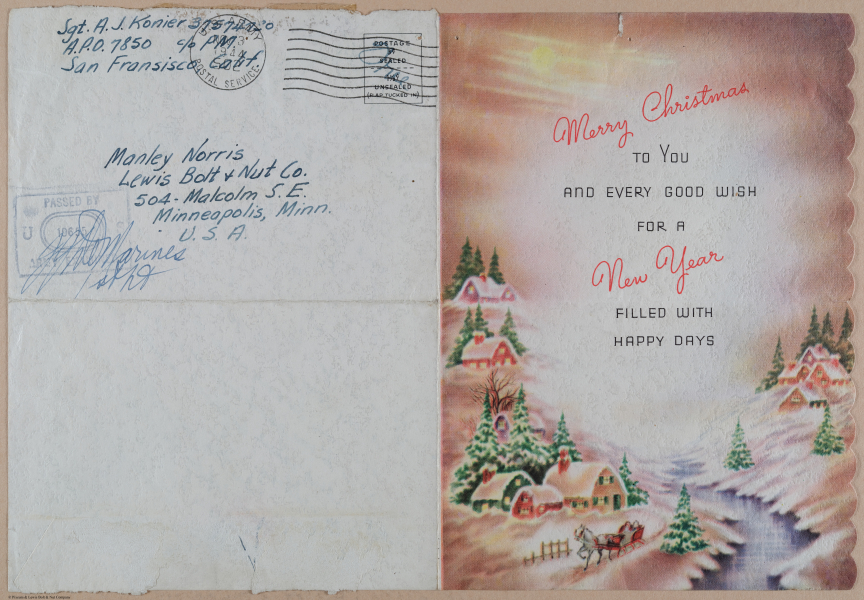 Sgt. A. J. Konier
A.P.O. 7850 c/o P.M.
San Fransisco Calif.
POSTAL SERVICE
POSTAGE
SEALED
UNSEALED
(FLAP TUCKED IN)
Manley Norris
Lewis Bolt & Nut Co.
504 - Malcolm S. E.
Minneapolis, Minn.
U. S. A.
PASSED BY
Merry Christmas
TO YOU
AND EVERY GOOD WISH
FOR A
New Year
FILLED WITH
HAPPY DAYS